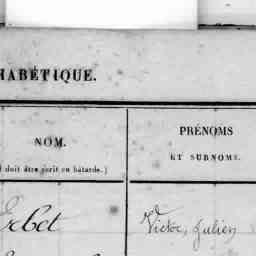 HABÉTIQUE.
NOM.
PRÉNOMS
doit être écrit en bâtarde.)
ET SURNOMS.
Victor, Julien